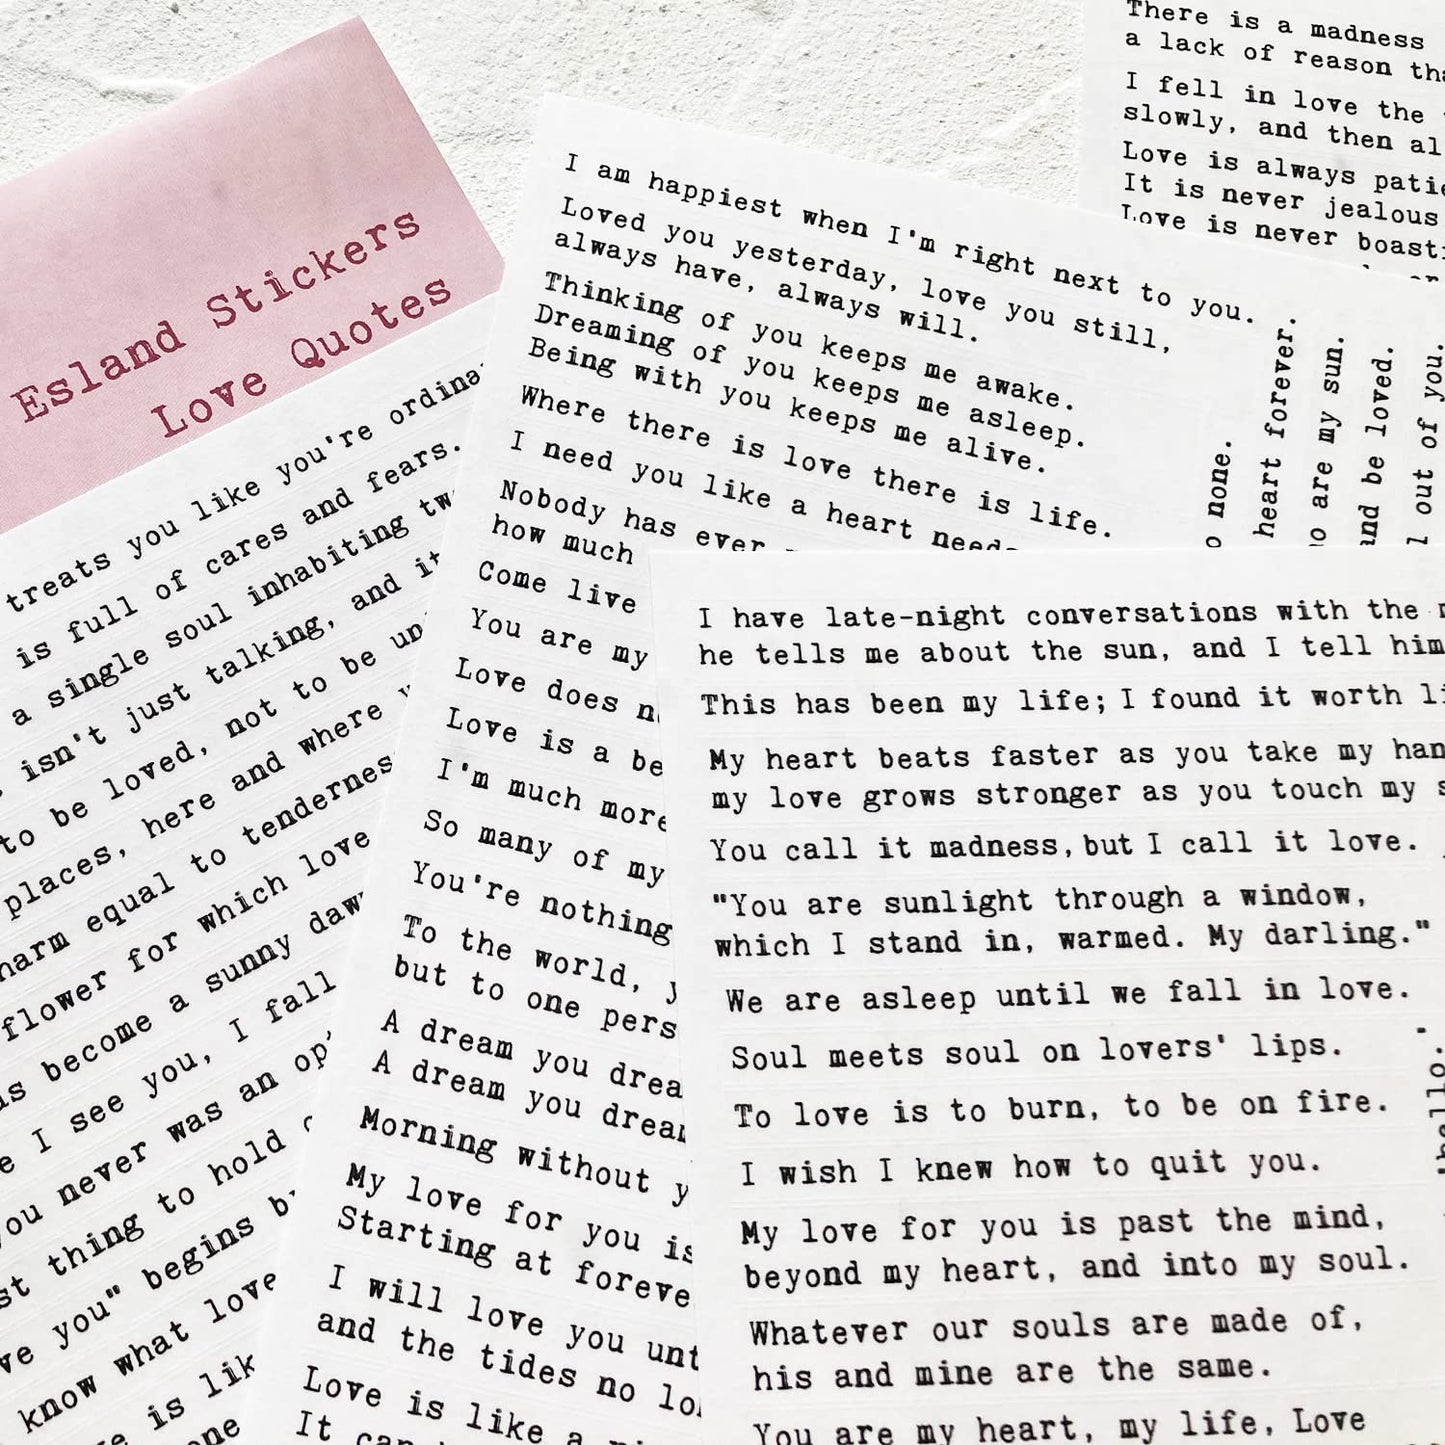 Esland Stickers
Love Quotes
treats you like you're
is full of cares and fears.
a single soul inhabiting
isn't just talking, and
to be loved, not to be
places, here and where
equal to
flower for which love
become a sunny
I see you, I fall
you never was an
thing to hold
you" begins
know what love
is
I am happiest when I'm right next to you.
Loved you yesterday, love you still,
always have, always will.
Thinking of you keeps me awake.
Dreaming of you keeps me asleep.
Being with you keeps me alive.
Where there is love there is life.
I need you like a heart
Nobody has ever
how much
Come live
You are my
Love does
Love is a
I'm much more
So many of my
You're nothing
To the world,
but to one
A dream you
A dream you
Morning without
My love for you is
Starting at
I will love you
and the tides no
Love is like a
It
There is a madness
a lack of reason
I fell in love the
slowly, and then
Love is always
It is never jealous
Love is never
none.
heart forever.
are my sun.
and be loved.
out of you.
I have late-night conversations with the
he tells me about the sun, and I tell him
This has been my life; I found it worth
My heart beats faster as you take my
my love grows stronger as you touch my
You call it madness, but I call it love.
"You are sunlight through a window,
which I stand in, warmed. My darling."
We are asleep until we fall in love.
Soul meets soul on lovers' lips.
To love is to burn, to be on fire.
I wish I knew how to quit you.
My love for you is past the mind,
beyond my heart, and into my soul.
Whatever our souls are made of,
his and mine are the same.
You are my heart, my life, Love